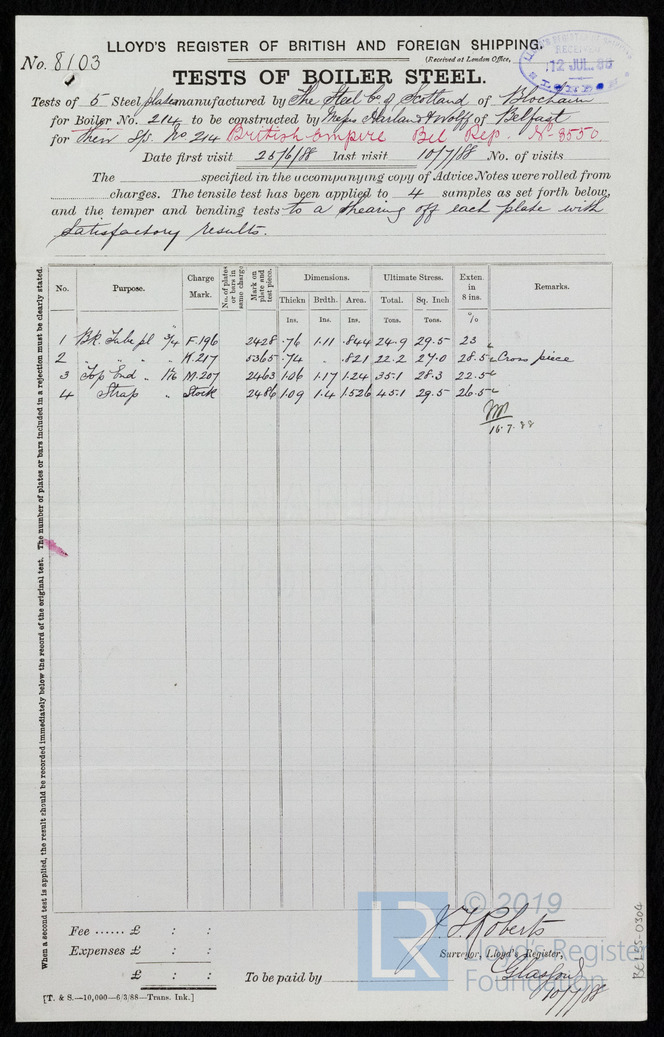 LLOYD'S REGISTER OF BRITISH AND FOREIGN SHIPPING.
No. 8103
(Received at London Office,
LLOYD'S REGISTER SHIPPING RECEIVED 12 JUL. 88 LONDON
TESTS OF BOILER STEEL.
Tests of 5 Steel plates manufactured by The Steel Co of Scotland of Blochairn
for Boiler No. 214 to be constructed by Messrs Harland & Wolff of Belfast
for Their No 214 British Empire Bel Rep. No 3550
Date first visit 25/6/88 last visit 10/7/88 No. of visits
The specified in the accompanying copy of Advice Notes were rolled from
charges. The tensile test has been applied to 4 samples as set forth below,
and the temper and bending tests to a shearing off each plate with
satisfactory results.
When a second test is applied, the result should be recorded immediately below the record of the original test. The number of plates or bars included in a rejection must be clearly stated.
No. Purpose. Charge Mark. No. of plates or bars in same charge Mark on plate and test piece. Dimensions. Ultimate Stress. Exten. in 8 ins. Remarks.
Thickn Brdth. Area. Total. Sq. Inch
Ins. Ins. Ins. Tons. Tons. %
1 Bk. Tube pl 3/4" F.196 2428 .76 1.11 .844 24.9 29.5 23
2 " " " " K.217 5365 .74 " .821 22.2 27.0 28.5 Cross piece
3 Top End " M.207 2463 1.06 1.17 1.24 35.1 28.3 22.5
4 Strap " Stock 2486 1.09 1.4 1.526 45.1 29.5 26.5
16.7.88
Fee ...... £ : :
Expenses £ : :
£ : :
To be paid by
J. T. Roberts
Surveyor, Lloyd's Register,
Glasgow
10/7/88
[T. & S.—10,000—6/3/88—Trans. Ink.]
BEL33-0304
LR © 2019
Lloyd's Register
Foundation